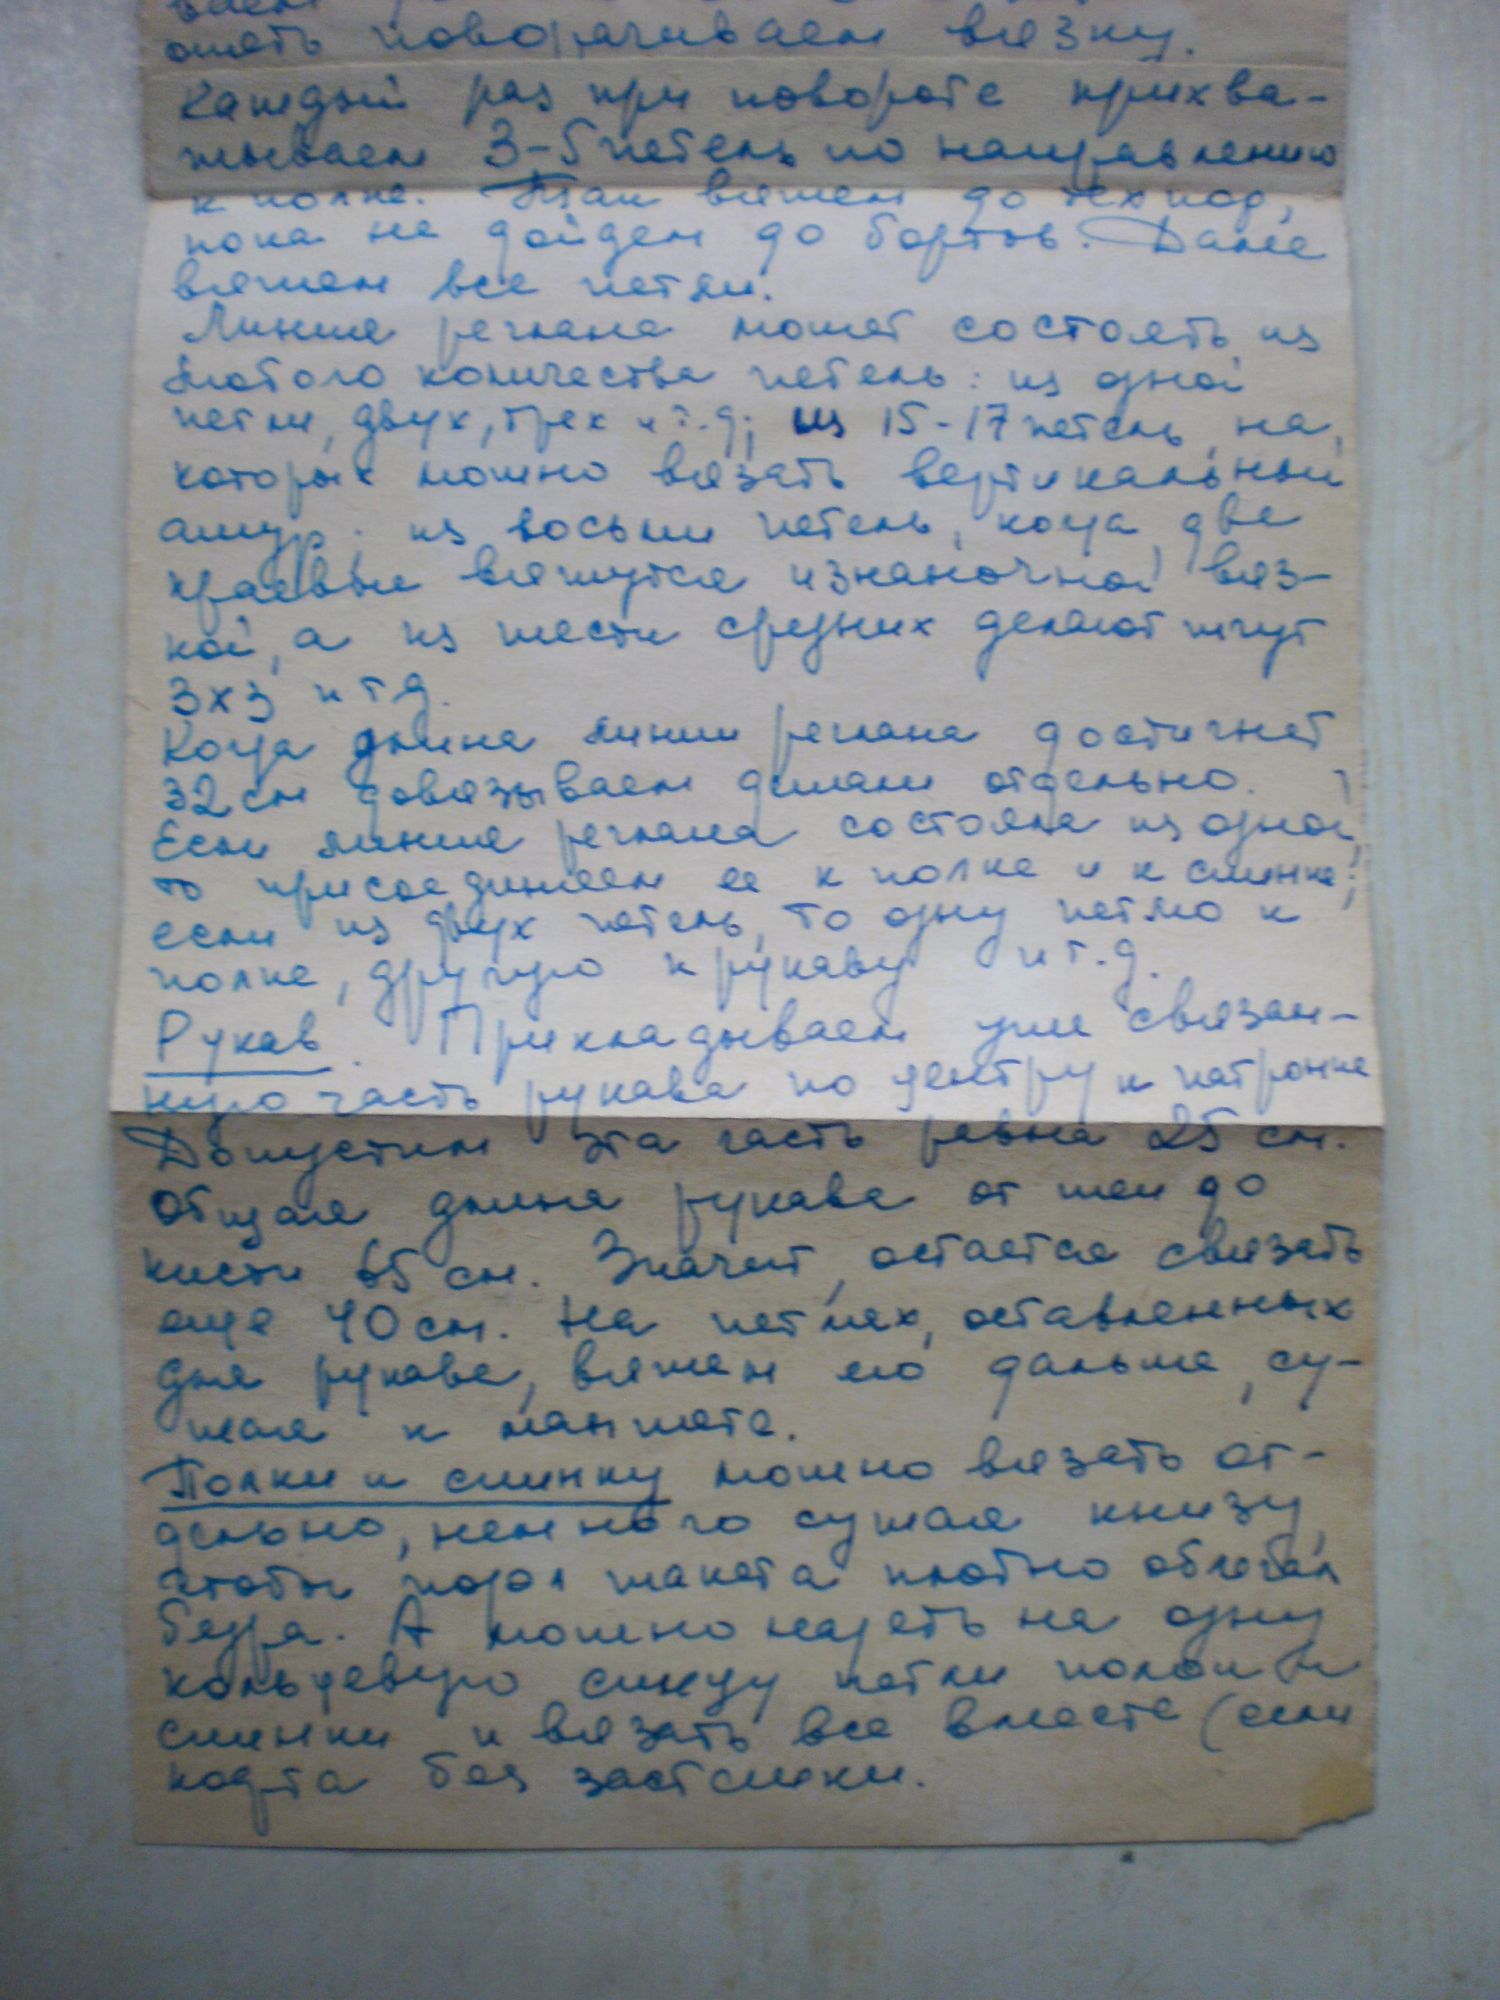 ваем
опять поворачиваем вязку.
Каждый раз при повороте прихва-
тываем 3-5 петель по направлению
к полке. Так вяжем до тех пор,
пока не дойдем до бортов. Далее
вяжем все петли.
Линия реглана может состоять из
любого количества петель: из одной
петли, двух, трех и т.д; из 15-17 петель, на
которых можно вязать вертикальный
ажур; из восьми петель, когда две
краевые вяжутся изнаночной вяз-
кой, а из шести средних делают жгут
3х3 и т д.
Когда длина линии реглана достигнет
32 см довязываем детали отдельно.
Если линия реглана состояла из одной,
то присоединяем ее к полке и к спинке;
если из двух петель, то одну петлю к
полке, другую к рукаву и т.д.
Рукав. Прикладываем уже связан-
ную часть рукава по центру к патронке
Допустим эта часть равна 25 см.
Общая длина рукава от шеи до
кисти 65 см. Значит, остается связать
еще 40 см. На петлях, оставленных
для рукава, вяжем его дальше, су-
жая к манжете.
Полки и спинку можно вязать от-
дельно, немного сужая книзу,
чтобы подол жакета плотно облегал
бедра. А можно надеть на одну
кольцевую спицу петли полок и
спинки и вязать все вместе (если
кофта без застежки.